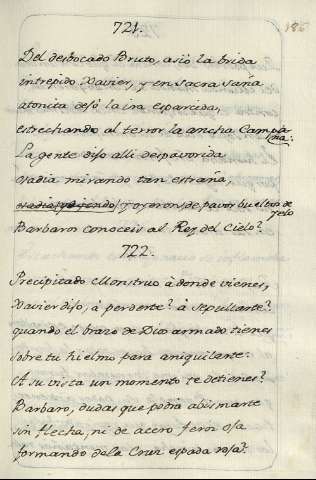 721.
186
Del desbocado Bruto, asió la brida
intrepido Xavier, y en sacra saña
atonita dejó la ira esparcida,
estrechando al terror la ancha Campa
ña:
La gente dijo alli despavorida
osadia mirando tan estraña,
y oyeronse, de pavor bueltos de
yelo
Barbaros conoceis al Rey del Cielo?
722.
Precipitado Monstruo à donde vienes,
Xavier dijo, à perderte? à sepultarte?
quando el brazo de Dios armado tienes
sobre tu hielmo para aniquilarte:
A su vista un momento te detienes?
Barbaro, dudas que podrá abismarte
sin flecha, ni de acero feroz osa
formando de la Cruz espada rosa?